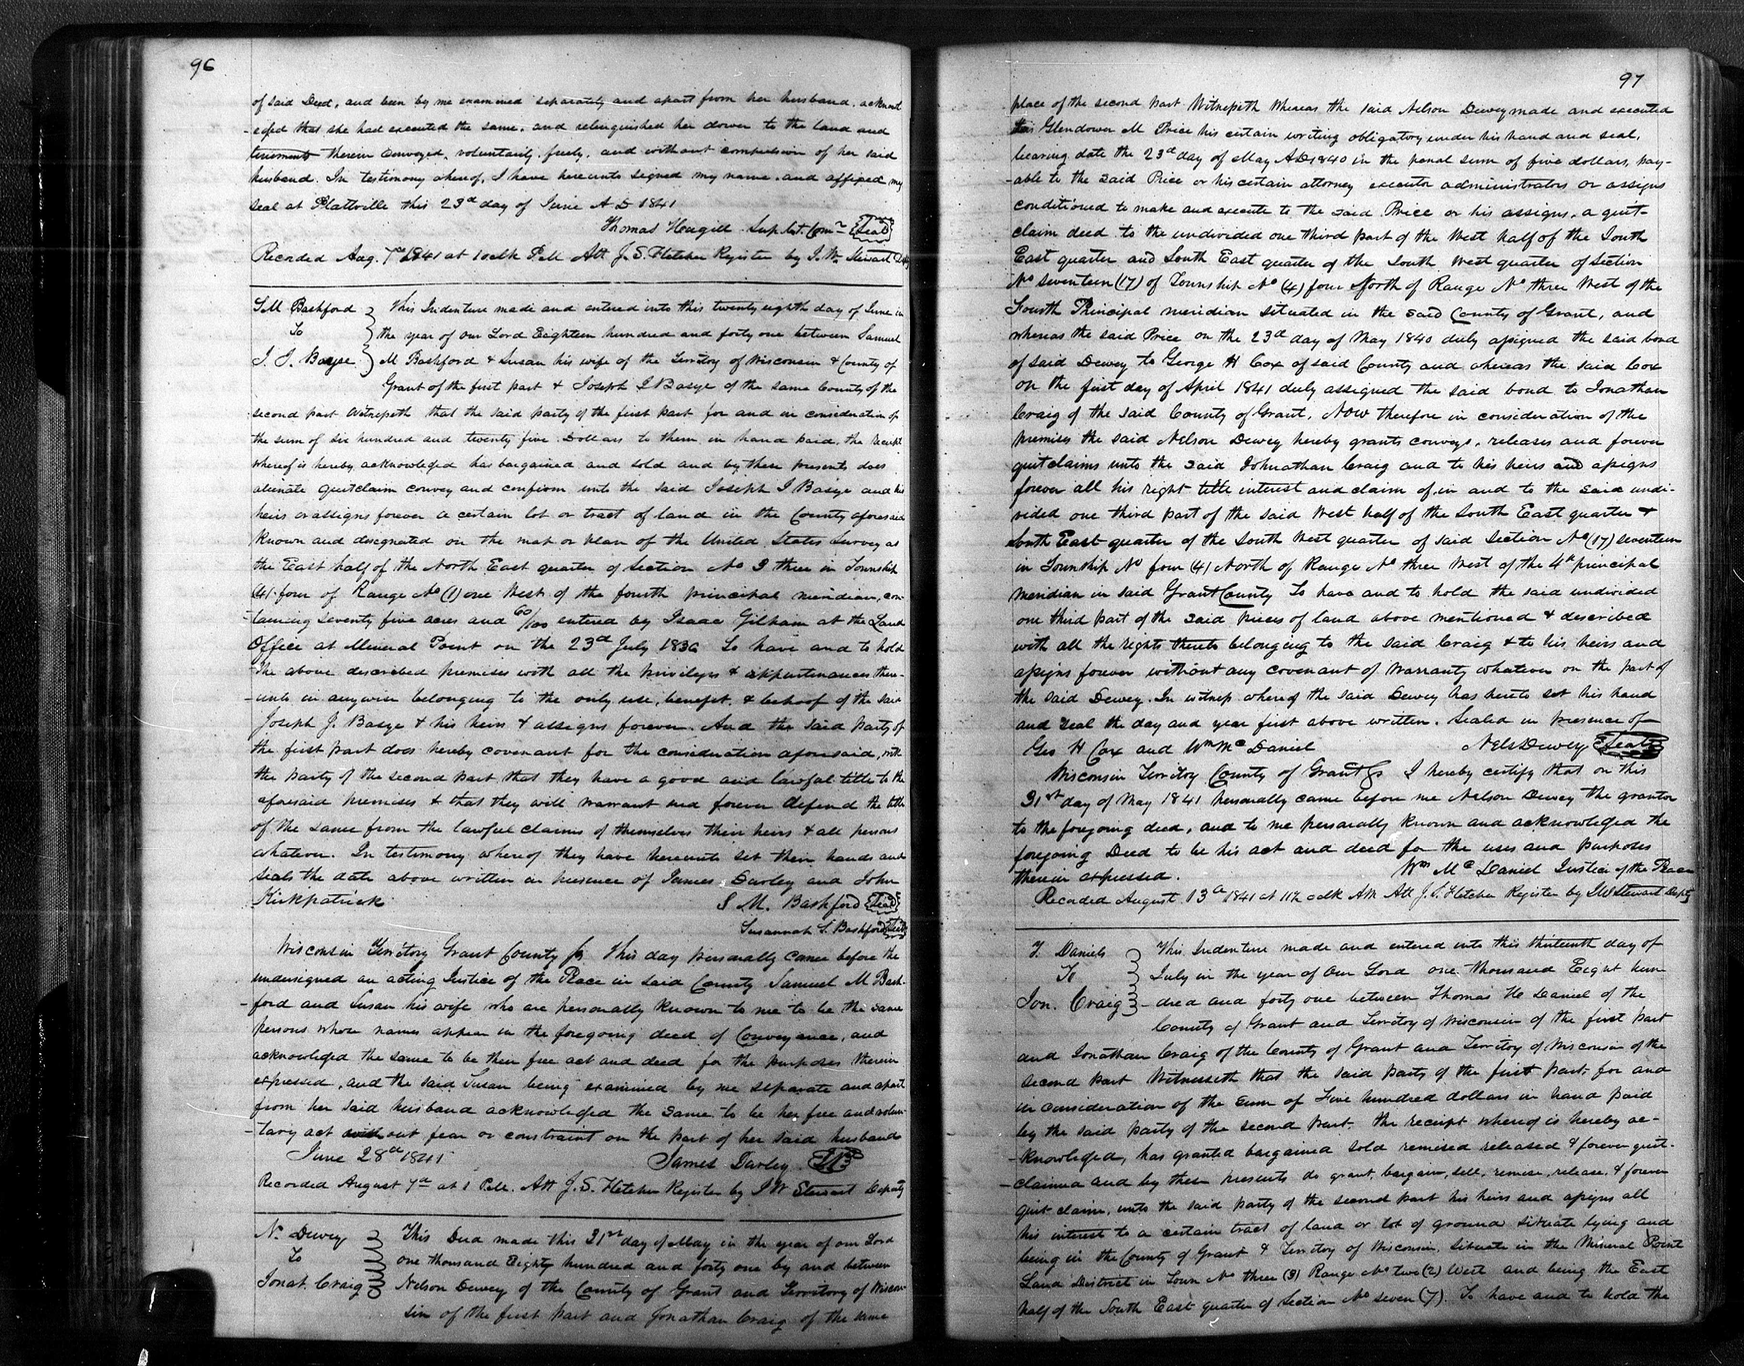 96
of said Deed, and been by me examined separately and apart from her husband, acknowl
-edged that she had executed the same, and relinquished her dower to the land and
tenements therein conveyed, voluntarily, freely, and without compulsion of her said
husband. In testimony whereof, I have hereunto signed my name, and affixed my
seal at Plattville this 23d day of June A D 1841
Thomas Hugill Sup. Ct. Comr Seal
Recorded Aug. 7th 1841 at 1 oclk P.M. Att J. S. Fletcher Register by J. W. Stewart Dpty
S M Bashford
To
J. J. Basye
This Indenture made and entered into this twenty eighth day of June in
the year of our Lord Eighteen hundred and forty one between Samuel
M Bashford & Susan his wife of the Territory of Wisconsin & County of
Grant of the first part & Joseph J Basye of the same County of the
second part Witnesseth that the said party of the first part for and in consideration of
the sum of six hundred and twenty five Dollars to them in hand paid, the receipt
whereof is hereby acknowledged has bargained and sold and by these presents does
alienate quitclaim convey and confirm unto the said Joseph J Basye and his
heirs or assigns forever a certain lot or tract of land in the County aforesaid
known and designated on the map or plan of the United States Survey as
the East half of the North East quarter of Section No 3 three in Township
(4) four of Range No (1) one West of the fourth principal meridian, con-
-taining seventy five acres and 60/100 entered by Isaac Gilham at the Land
Office at Mineral Point on the 23d July 1836 To have and to hold
the above described premises with all the privileges & appurtenances there-
-unto in anywise belonging to the only use, benefit, & behoof of the said
Joseph J. Basye & his heirs & assigns forever. And the said party of
the first part does hereby covenant for the consideration aforesaid, with
the party of the second part that they have a good and lawful title to the
aforesaid premises & that they will warrant and forever defend the title
of the same from the lawful claims of themselves their heirs & all persons
whatever. In testimony whereof they have hereunto set their hands and
seals the date above written in presence of James Durley and John
Kirkpatrick
S M. Bashford Seal
Susannah S. Bashford Seal
Wisconsin Territory Grant County ss. This day personally came before the
undersigned an acting Justice of the Peace in said County Samuel M Bash-
-ford and Susan his wife who are personally known to me to be the same
persons whose names appear in the foregoing deed of Conveyance, and
acknowledged the same to be their free act and deed for the purposes therein
expressed, and the said Susan being examined by me separate and apart
from her said husband acknowledged the same to be her free and volun-
-tary act without fear or constraint on the part of her said husband
June 28th 1841
James Durley J.P.
Recorded August 7th at 1 P.M. Att J. S. Fletcher Register by J W Stewart Deputy
N. Dewey
To
Jonat. Craig
This Deed made this 31st day of May in the year of our Lord
one thousand Eighty hundred and forty one by and between
Nelson Dewey of the County of Grant and Territory of Wiscon-
sin of the first part and Jonathan Craig of the same
97
place of the second part Witnesseth Whereas the said Nelson Dewey made and executed
to Glendower M Price his certain writing obligatory under his hand and seal,
bearing date the 23d day of May AD 1840 in the penal sum of five dollars, pay-
-able to the said Price or his certain attorney executor administrators or assigns
conditioned to make and execute to the said Price or his assigns, a quit-
claim deed to the undivided one third part of the West half of the South
East quarter and South East quarter of the South West quarter of Section
No seventeen (17) of Township No (4) four North of Range No three West of the
Fourth Principal meridian situated in the said County of Grant, and
whereas the said Price on the 23d day of May 1840 duly assigned the said bond
of said Dewey to George H Cox of said County and whereas the said Cox
on the first day of April 1841 duly assigned the said bond to Jonathan
Craig of the said County of Grant. Now therefore in consideration of the
premises the said Nelson Dewey hereby grants conveys, releases and forever
quitclaims unto the said Johnathan Craig and to his heirs and assigns
forever all his right title interest and claim of, in and to the said undi-
vided one third part of the said West half of the South East quarter &
South East quarter of the South West quarter of said Section No (17) seventeen
in Township No four (4) North of Range No three West of the 4th principal
meridian in said Grant County To have and to hold the said undivided
one third part of the said pieces of land above mentioned & described
with all the rights thereto belonging to the said Craig & to his heirs and
assigns forever without any covenant of Warranty whatever on the part of
the said Dewey. In witness whereof the said Dewey has hereto set his hand
and seal the day and year first above written. Sealed in presence of
Geo H Cox and Wm McDaniel
Nels Dewey Seal
Wisconsin Territory County of Grant ss I hereby certify that on this
31st day of May 1841 personally came before me Nelson Dewey the grantor
to the foregoing deed, and to me personally known and acknowledged the
foregoing Deed to be his act and deed for the uses and purposes
therein expressed.
Wm McDaniel Justice of the Peace
Recorded August 13th 1841 at 11½ oclk AM Att J. S. Fletcher Register by J W Stewart Depty
T. Daniels
To
Jon. Craig
This Indenture made and entered into this thirteenth day of
July in the year of our Lord one thousand Eight hun-
-dred and forty one between Thomas W Daniel of the
County of Grant and Territory of Wisconsin of the first part
and Jonathan Craig of the County of Grant and Territory of Wisconsin of the
second part Witnesseth that the said party of the first part for and
in consideration of the sum of Five hundred dollars in hand paid
by the said party of the second part, the receipt whereof is hereby ac-
-knowledged, has granted bargained sold remised released & forever quit-
-claimed and by these presents do grant, bargain, sell, remise, release, & forever
quit claim, unto the said party of the second part his heirs and assigns all
his interest to a certain tract of land or lot of ground situate lying and
being in the County of Grant & Territory of Wisconsin, situate in the Mineral Point
Land District in Town No three (3) Range No two (2) West and being the East
half of the South East quarter of Section No seven (7). To have and to hold the